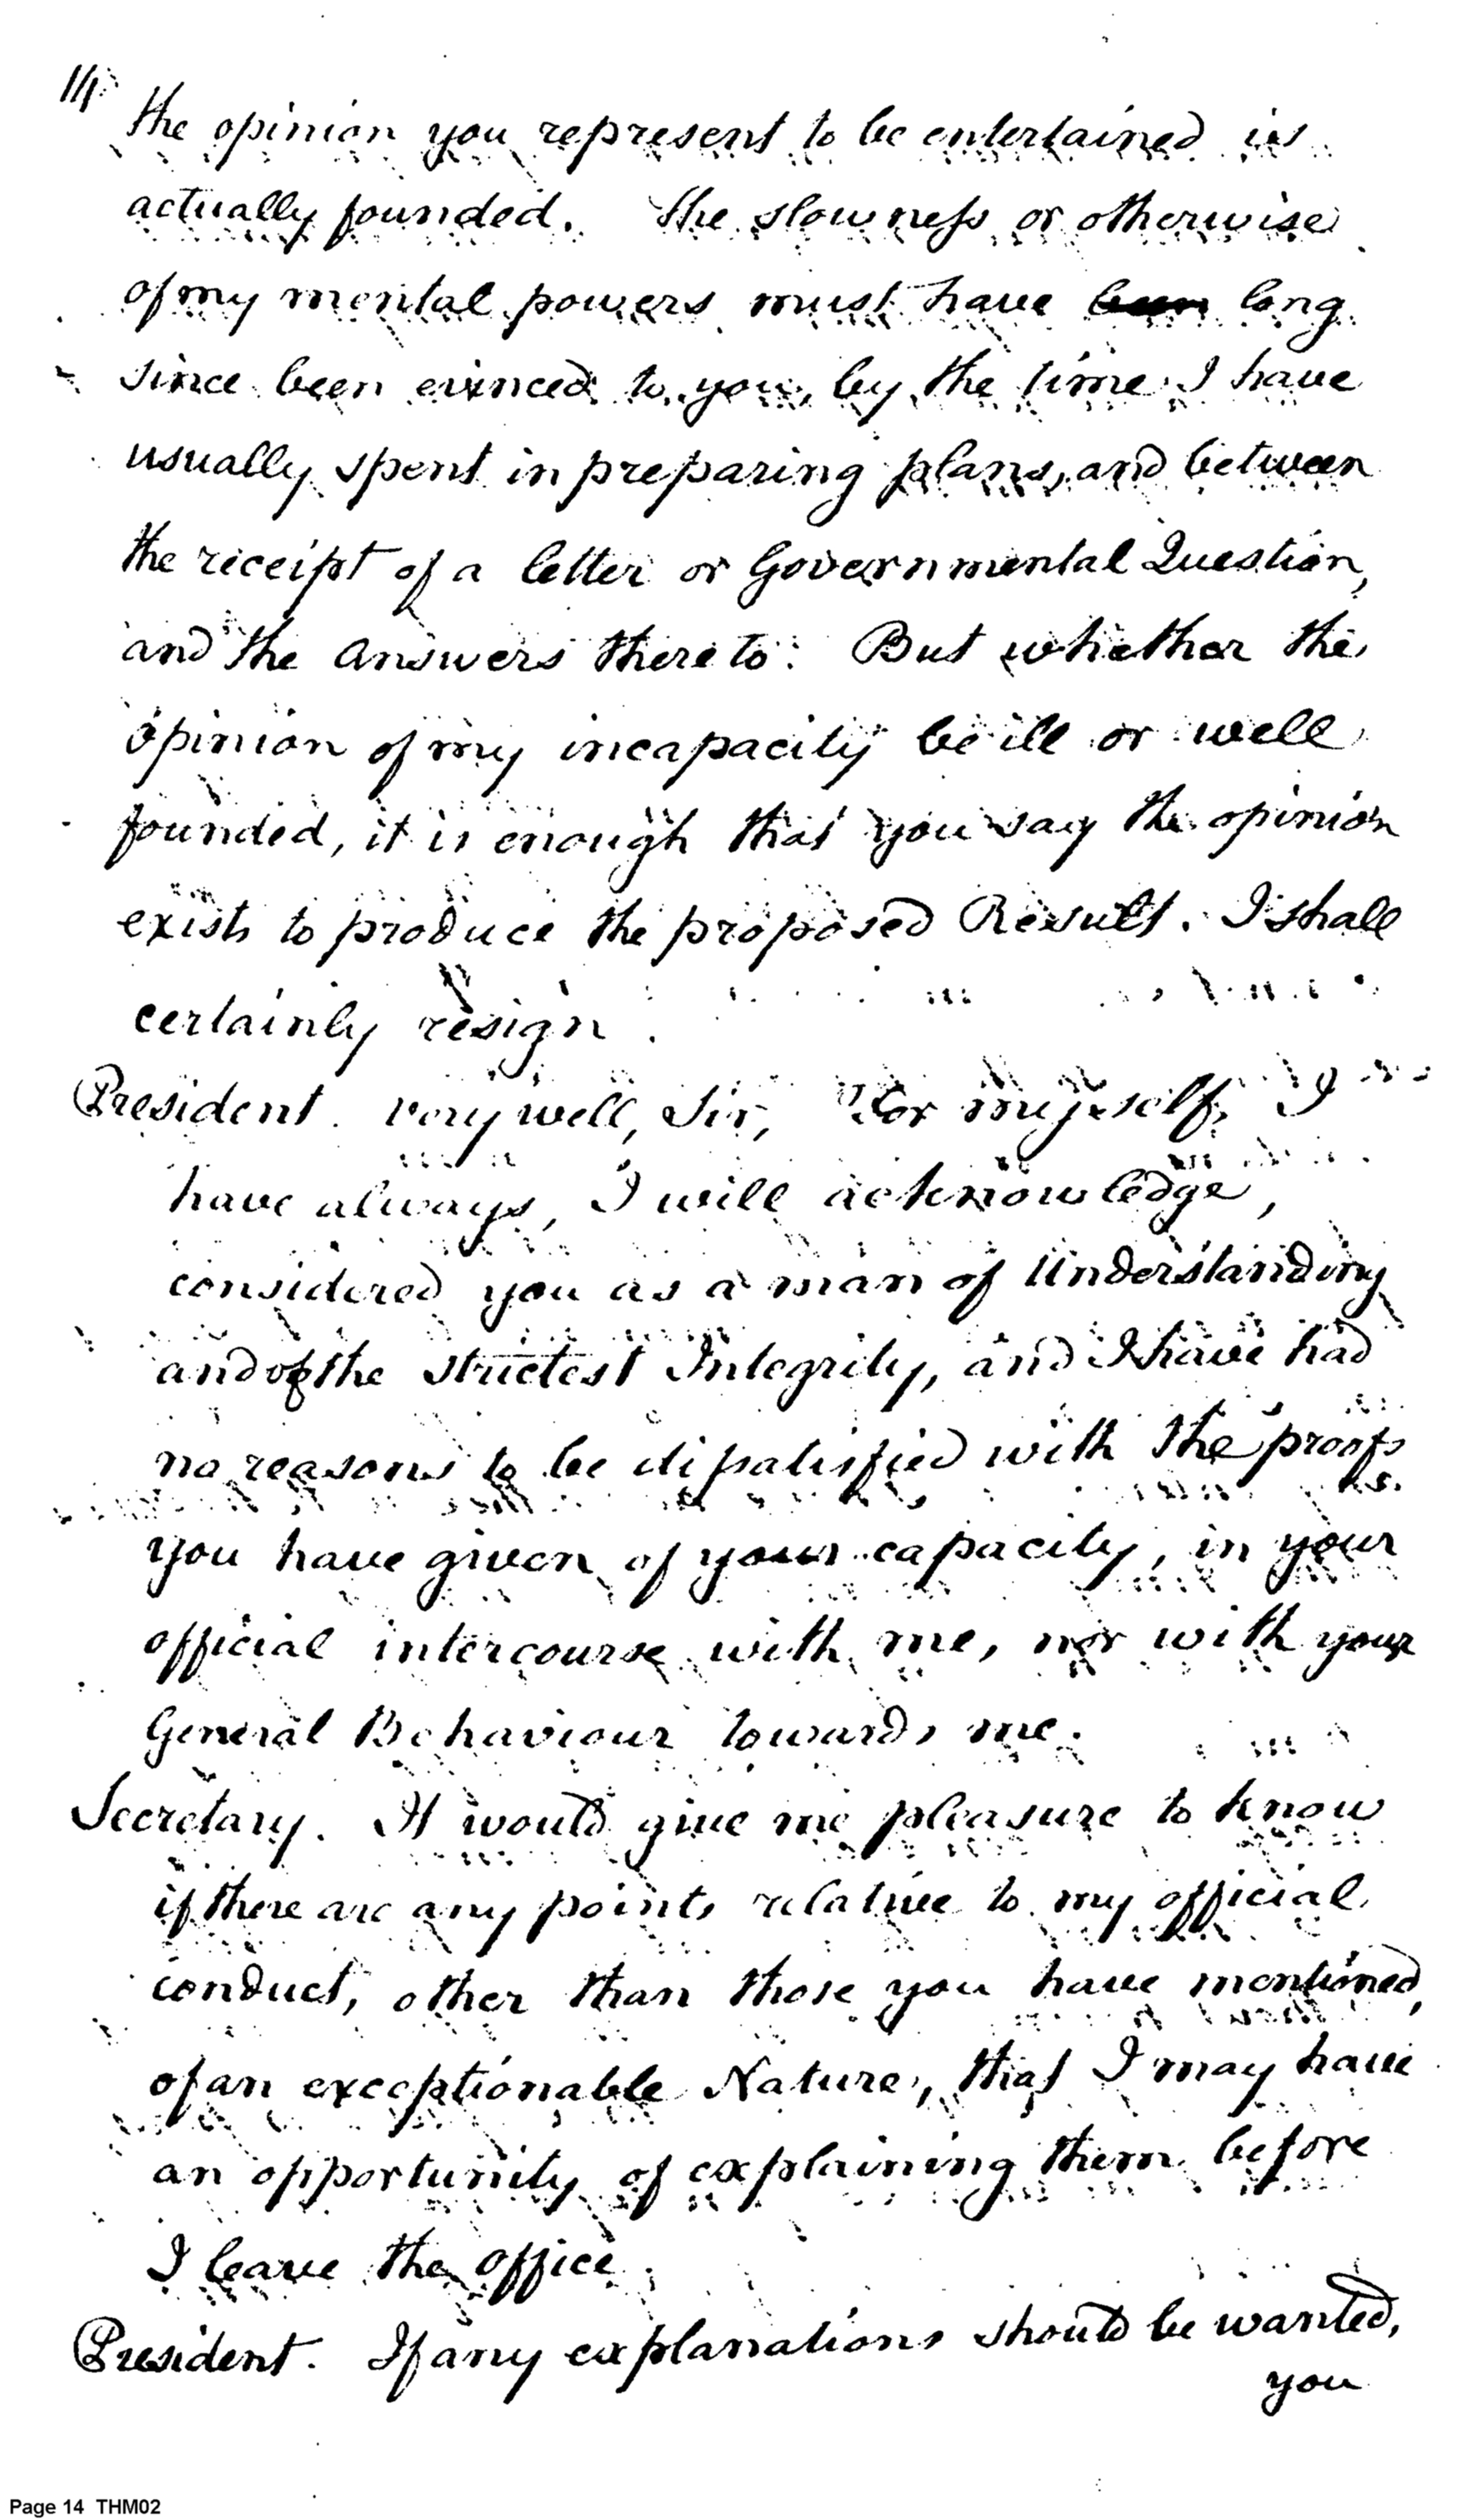 14
the opinion you represent to be entertained is
actually founded. The slowness or otherwise
of my mental powers must have been long
since been evinced to you, by the time I have
usually spent in preparing plans, and between
the receipt of a letter or Governmental Question,
and the answers thereto. But whether the
opinion of my incapacity be ill or well
founded, it is enough that you say the opinion
exists to produce the proposed Result. I shall
certainly resign.
President. very well, Sir, For myself, I
have always, I will acknowledge,
considered you as a man of Understanding
and of the strictest Integrity, and I have had
no reasons to be dissatisfied with the proofs
you have given of your capacity, in your
official intercourse with me, nor with your
General Behaviour towards me.
Secretary. It would give me pleasure to know
if there are any points relative to my official
conduct, other than those you have mentioned,
of an exceptionable Nature, that I may have
an opportunity of explaining them before
I leave the office.
President. If any explanations should be wanted,
you
Page 14 THM02